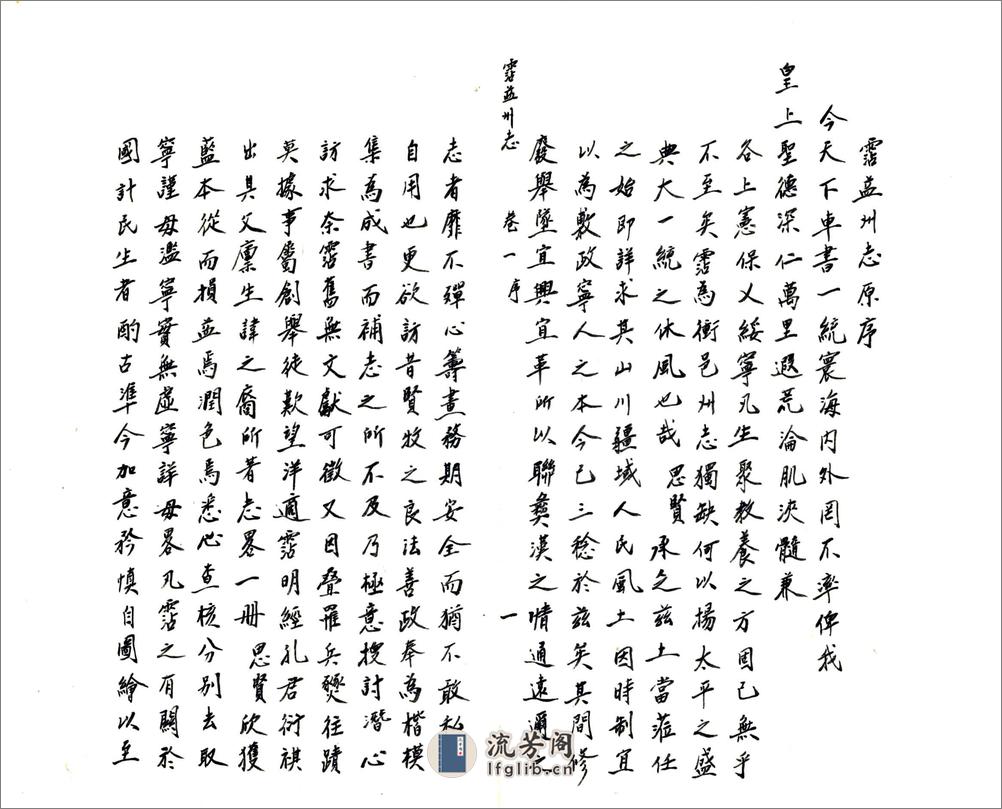 霑益州志原序
今天下車書一統寰海内外罔不率俾我
皇上聖德深仁萬里遐荒淪肌浹髓兼
各上憲保乂綏寧凡生聚教養之方固已無乎
不至矣霑為衝邑州志獨缺何以揚太平之盛
典大一統之休風也哉思賢承乏茲土當蒞任
之始即詳求其山川疆域人民風土因時制宜
以為敷政寧人之本今已三稔於茲矣其間修
廢舉墜宜興宜革所以聯彝漢之情通遠邇之
霑益州志 卷一 序 一
志者靡不殫心籌畫務期安全而猶不敢私
自用也更欲訪昔賢牧之良法善政奉為楷模
集為成書而補志之所不及乃極意搜討潛心
訪求奈霑舊無文獻可徵又因疊罹兵燹往蹟
莫據事屬創舉徒歎望洋適霑明經孔君衍祺
出其父廩生諱之裔所著志畧一册思賢欣獲
藍本從而損益焉潤色焉悉心查核分別去取
寧謹毋濫寧實無虛寧詳毋畧凡霑之有關於
國計民生者酌古準今加意矜慎自圖繪以至
流芳阁
lfglib.cn